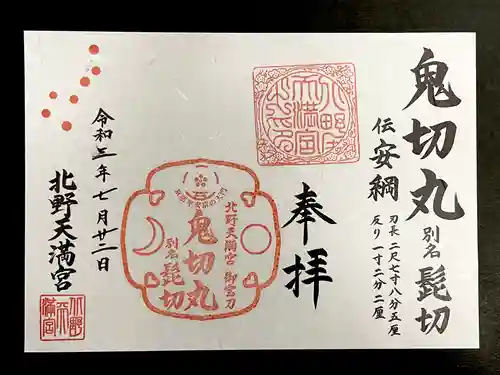 鬼切丸 別名 髭切
伝 安綱
刃長 二尺七寸八分五厘
反り 一寸二分二厘
奉拝
北野天満宮之印
北野天満宮 御宝刀
鬼切丸
別名 髭切
令和三年七月廿二日
北野天満宮
北野天満宮